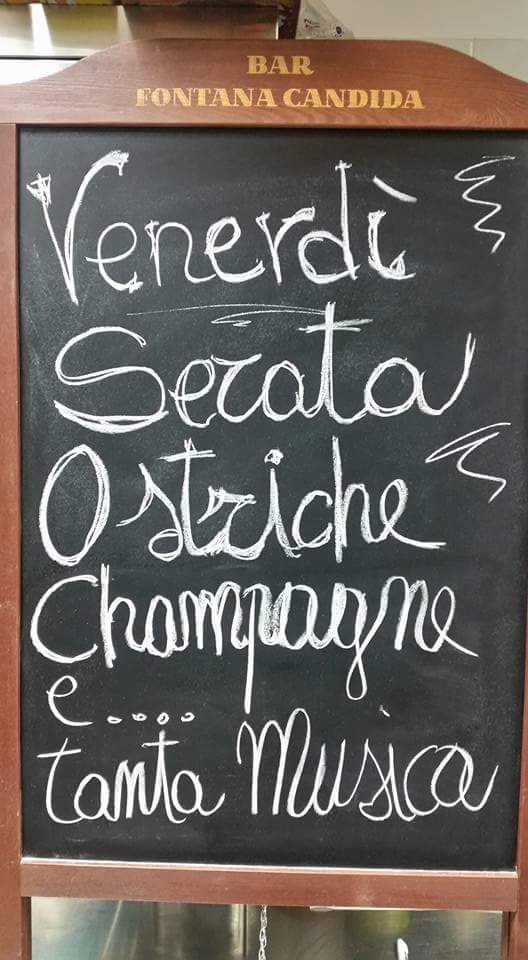 BAR
FONTANA CANDIDA
Venerdì
Serata
Ostriche
Champagne
e....
tanta Musica